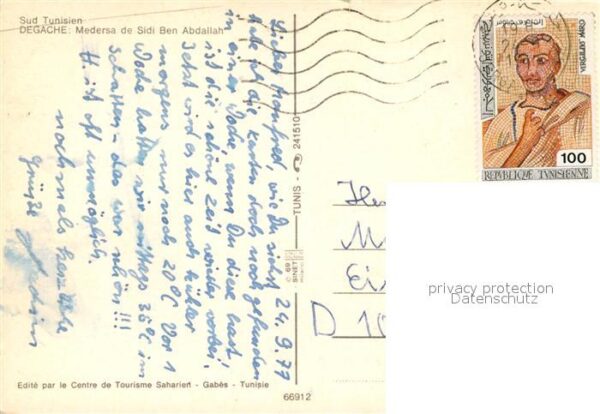 Sud Tunisien
DEGACHE: Medersa de Sidi Ben Abdallah
24.9.77
Lieber Manfred, wie Du siehst
habe ich die Karten doch noch gefunden
in einer Woche, wenn Du diese hast,
ist die schöne Zeit wieder vorbei.
Jetzt wird es hier auch kühler
morgens nur noch 20°C. Vor 1
Woche hatten wir mittags 36°C im
Schatten - das war schön!!!
H. ist oft unmöglich.
nochmals herzliche
Grüße
TUNIS - 241510
© 69
SINET
D 10
REPUBLIQUE TUNISIENNE
100
privacy protection
Datenschutz
Edité par le Centre de Tourisme Saharien - Gabès - Tunisie
66912